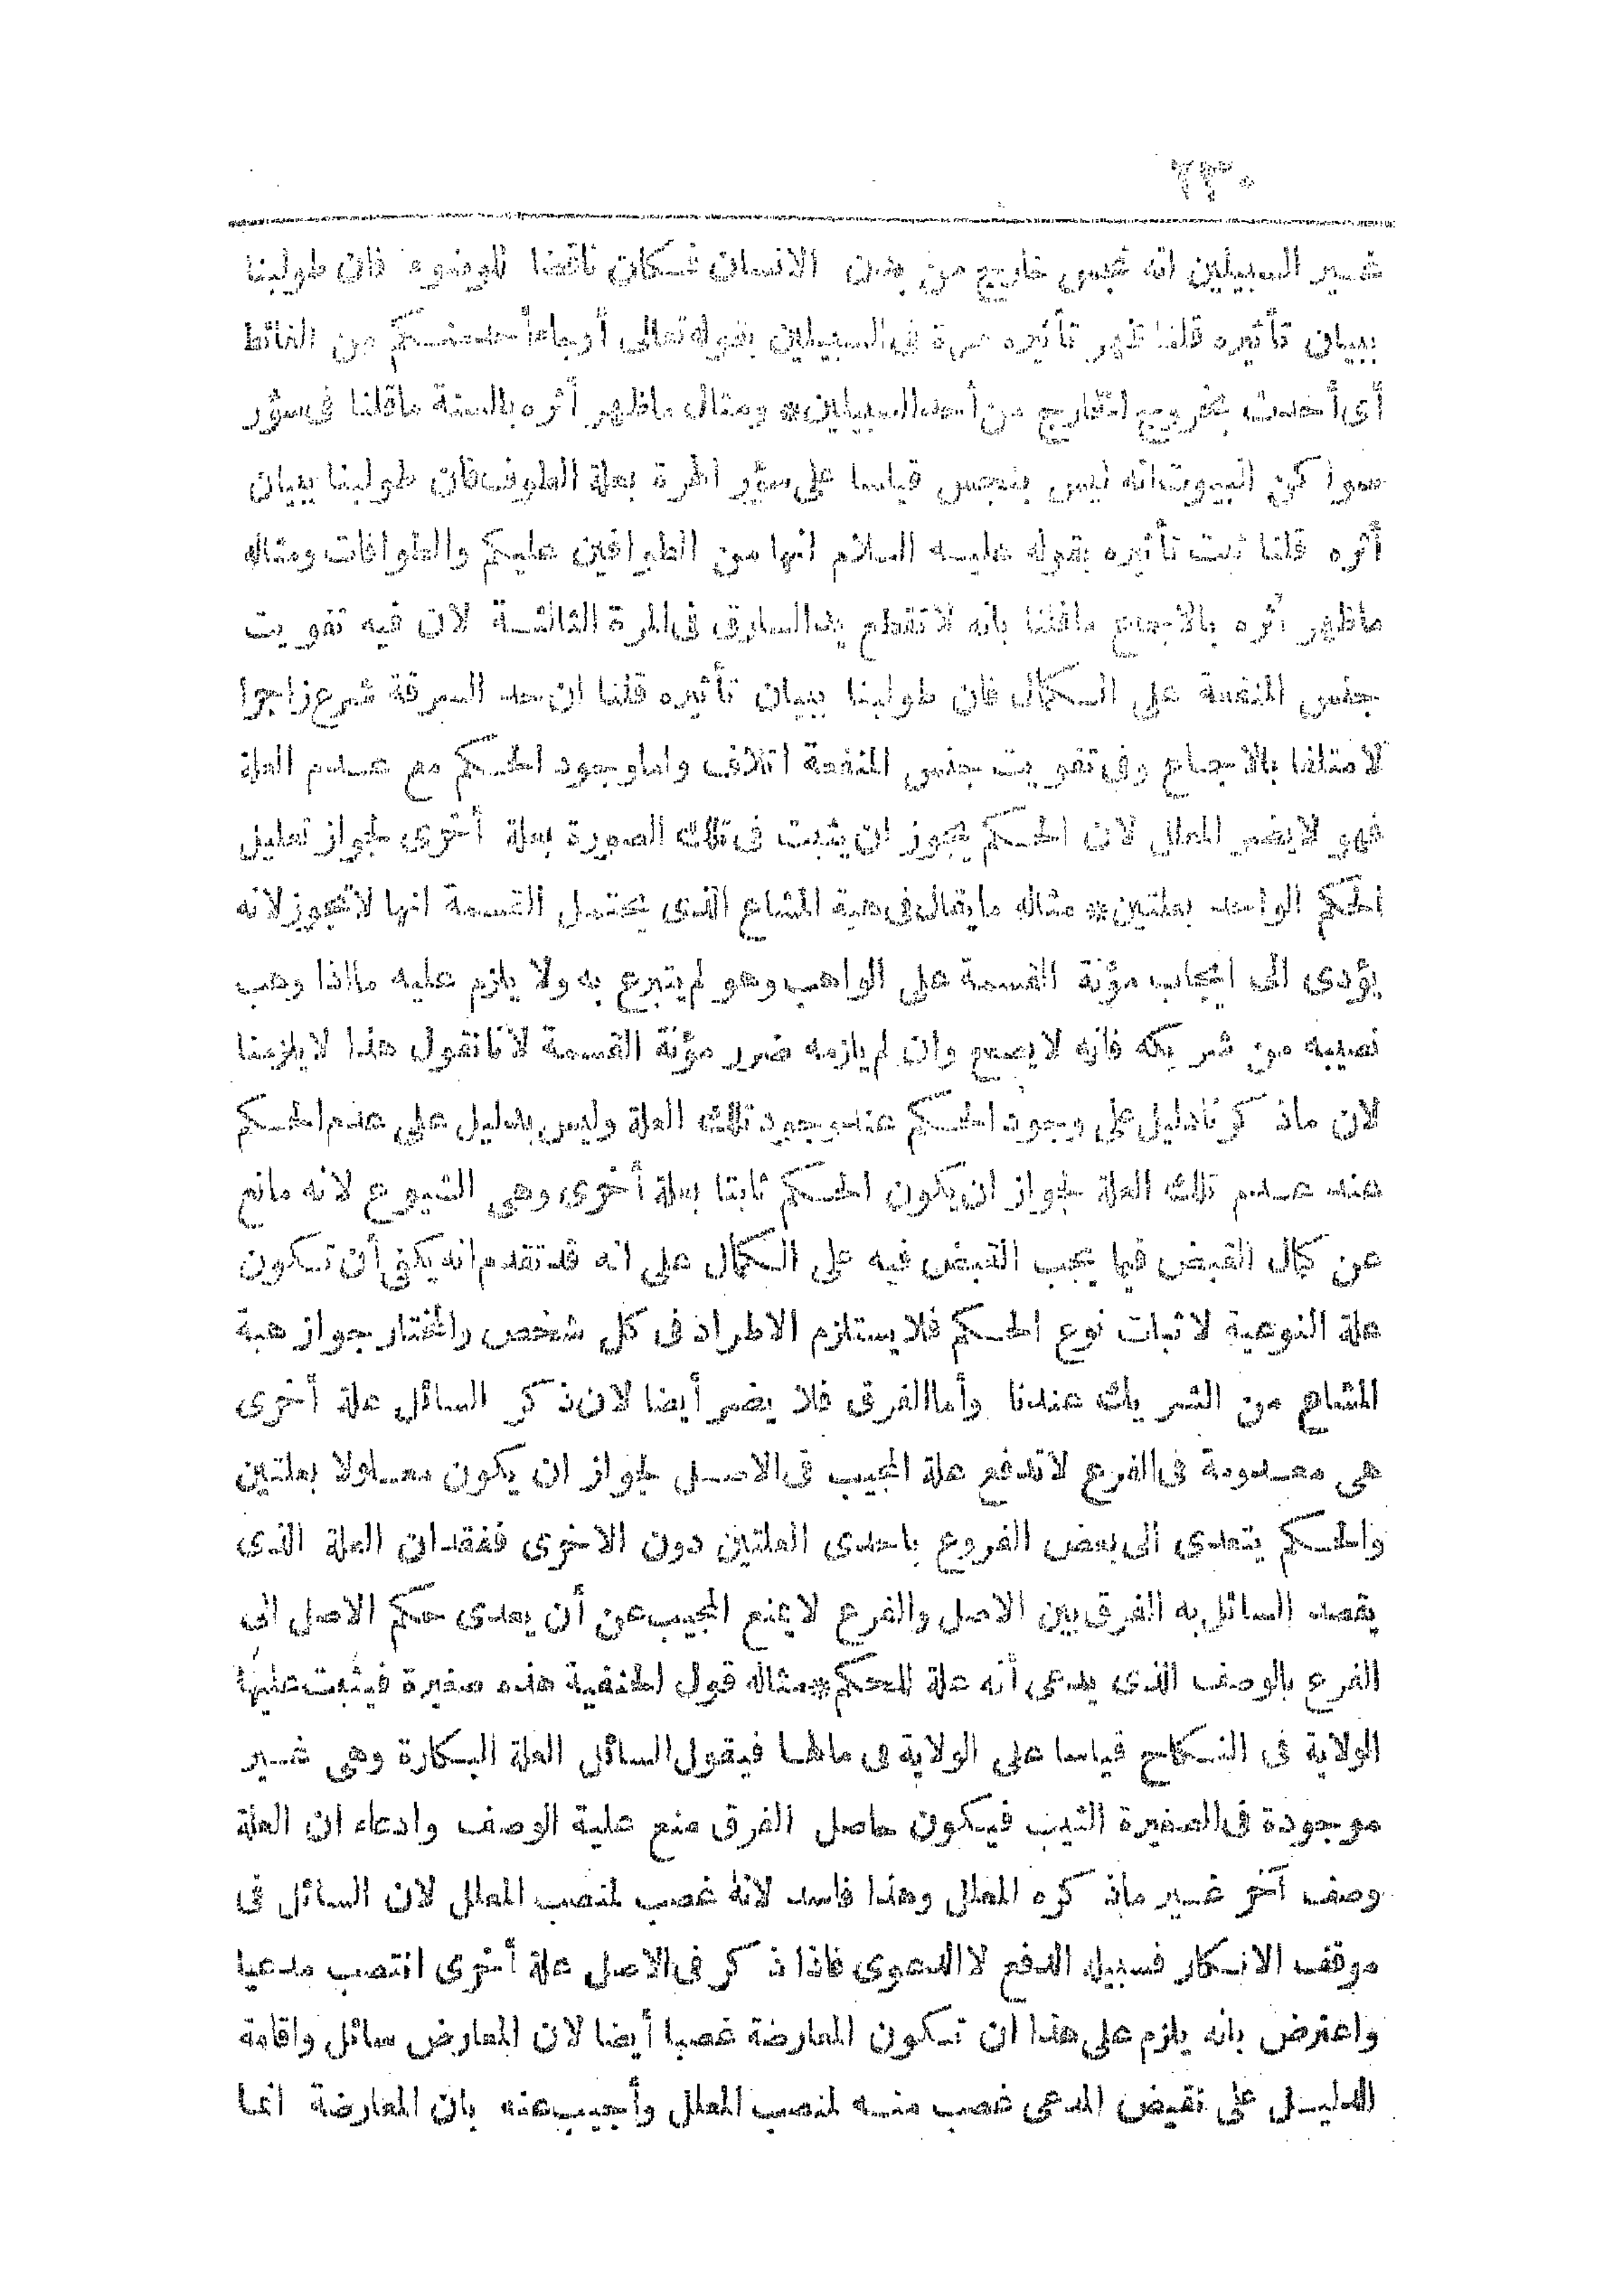 ٢٣٠
غير السبيلين انه نجس خارج من بدن الانسان فكان ناقضا للوضوء فان طولبنا
ببيان تأثيره قلنا ظهر تأثيره مرة فى السبيلين بقوله تعالى أوجاء أحد منكم من الغائط
أى أحدث بخروج الخارج من أحد السبيلين * ومثال ماظهر أثره بالسنة ماقلنا فى سؤر
سواكن البيوت انه ليس بنجس قياسا على سؤر الهرة بعلة الطوف فان طولبنا ببيان
أثره قلنا ثبت تأثيره بقوله عليه السلام انها من الطوافين عليكم والطوافات ومثاله
ماظهر أثره بالاجماع ماقلنا بانه لاتقطع يد السارق فى المرة الثالثة لان فيه تفويت
جنس المنفعة على الكمال فان طولبنا ببيان تأثيره قلنا ان حد السرقة شرع زاجرا
لامتلفا بالاجماع وفى تفويت جنس المنفعة اتلاف واما وجود الحكم مع عدم العلة
فهو لايضر المعلل لان الحكم يجوز ان يثبت فى تلك الصورة بعلة أخرى لجواز تعليل
الحكم الواحد بعلتين * مثاله مايقال فى هبة المشاع الذى يحتمل القسمة انها لاتجوز لانه
يؤدى الى ايجاب مؤنة القسمة على الواهب وهو لم يتبرع به ولا يلزم عليه مااذا وهب
نصيبه من شريكه فانه لايصح وان لم يلزمه ضرر مؤنة القسمة لانا نقول هذا لايلزمنا
لان ماذكرنا دليل على وجود الحكم عند وجود تلك العلة وليس بدليل على عدم الحكم
عند عدم تلك العلة لجواز ان يكون الحكم ثابتا بعلة أخرى وهى الشيوع لانه مانع
عن كمال القبض فيما يجب القبض فيه على الكمال على انه قد تقدم انه يكفى أن تكون
علة النوعية لاثبات نوع الحكم فلا يستلزم الاطراد فى كل شخص والمختار جواز هبة
المشاع من الشريك عندنا وأما الفرق فلا يضر أيضا لان ذكر السائل علة أخرى
هى معدومة فى الفرع لاتدفع علة المجيب فى الاصل لجواز ان يكون معلولا بعلتين
والحكم يتعدى الى بعض الفروع باحدى العلتين دون الاخرى ففقدان العلة الذى
يقصد السائل به الفرق بين الاصل والفرع لايمنع المجيب عن أن يعدى حكم الاصل الى
الفرع بالوصف الذى يدعى أنه علة للحكم * مثاله قول الحنفية هذه صغيرة فيثبت عليها
الولاية فى النكاح قياسا على الولاية فى مالها فيقول السائل العلة البكارة وهى غير
موجودة فى الصغيرة الثيب فيكون حاصل الفرق منع علية الوصف وادعاء ان العلة
وصف آخر غير ماذكره المعلل وهذا فاسد لانه غصب لمنصب المعلل لان السائل فى
موقف الانكار فسبيله الدفع لا الدعوى فاذا ذكر فى الاصل علة أخرى انتصب مدعيا
واعترض بانه يلزم على هذا ان تكون المعارضة غصبا أيضا لان المعارض سائل واقامة
الدليل على نقيض المدعى غصب منه لمنصب المعلل وأجيب عنه بان المعارضة انما